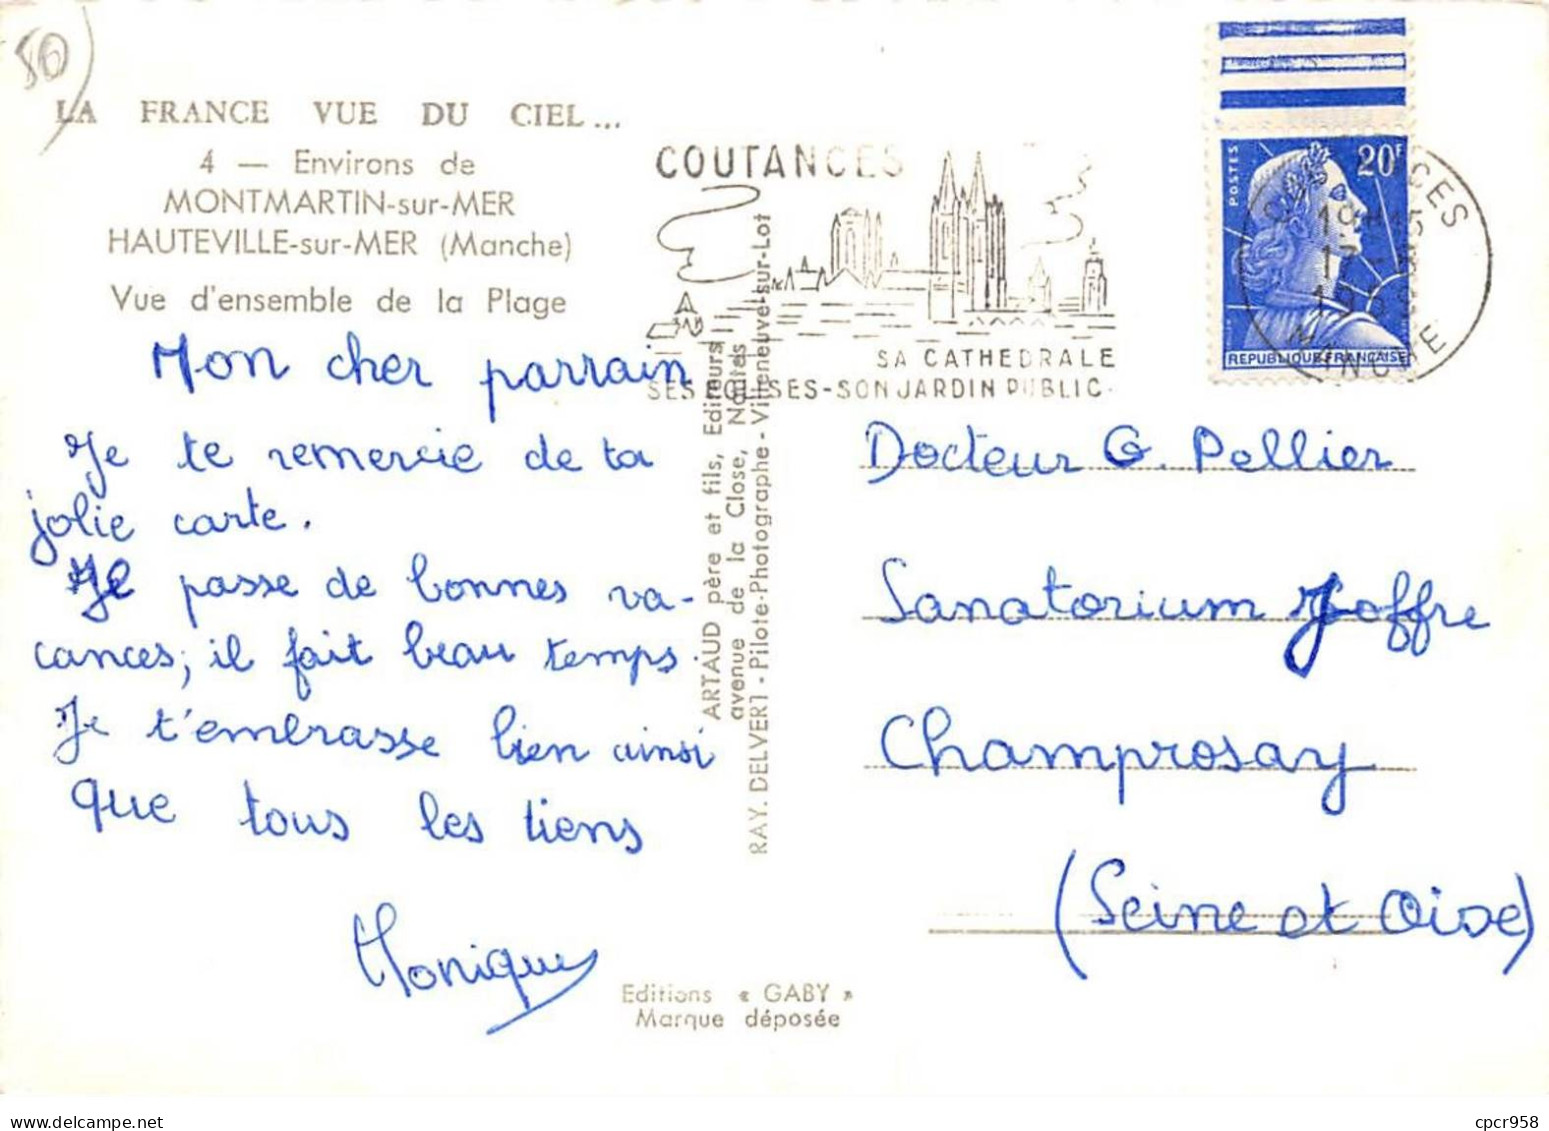 50
LA FRANCE VUE DU CIEL...
4 — Environs de
MONTMARTIN-sur-MER
HAUTEVILLE-sur-MER (Manche)
Vue d'ensemble de la Plage
COUTANCES
SA CATHEDRALE
SES EGLISES-SON JARDIN PUBLIC
POSTES
20F
REPUBLIQUE FRANÇAISE
19H15
MANCHE
Mon cher parrain
Je te remercie de ta
jolie carte.
Je passe de bonnes va-
cances, il fait beau temps.
Je t'embrasse bien ainsi
que tous les tiens
Monique
ARTAUD père et fils, Editeurs
avenue de la Close, Nantes
RAY. DELVERT - Pilote-Photographe - Villeneuve-sur-Lot
Docteur G. Pellier
Sanatorium Joffre
Champrosay
(Seine et Oise)
Editions « GABY »
Marque déposée
cpcr958